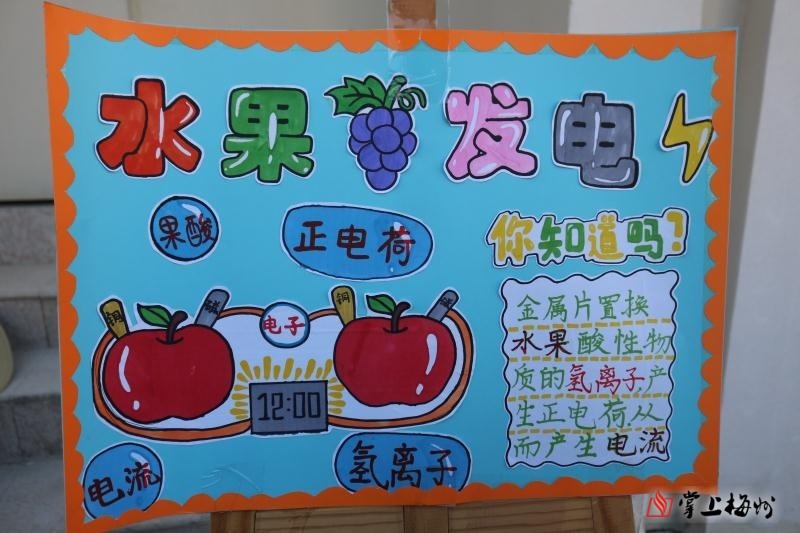 水果发电
果酸
正电荷
你知道吗?
铜
铜
电子
12:00
金属片置换
水果酸性物
质的氢离子产
生正电荷从
而产生电流
电流
氢离子
掌上梅州